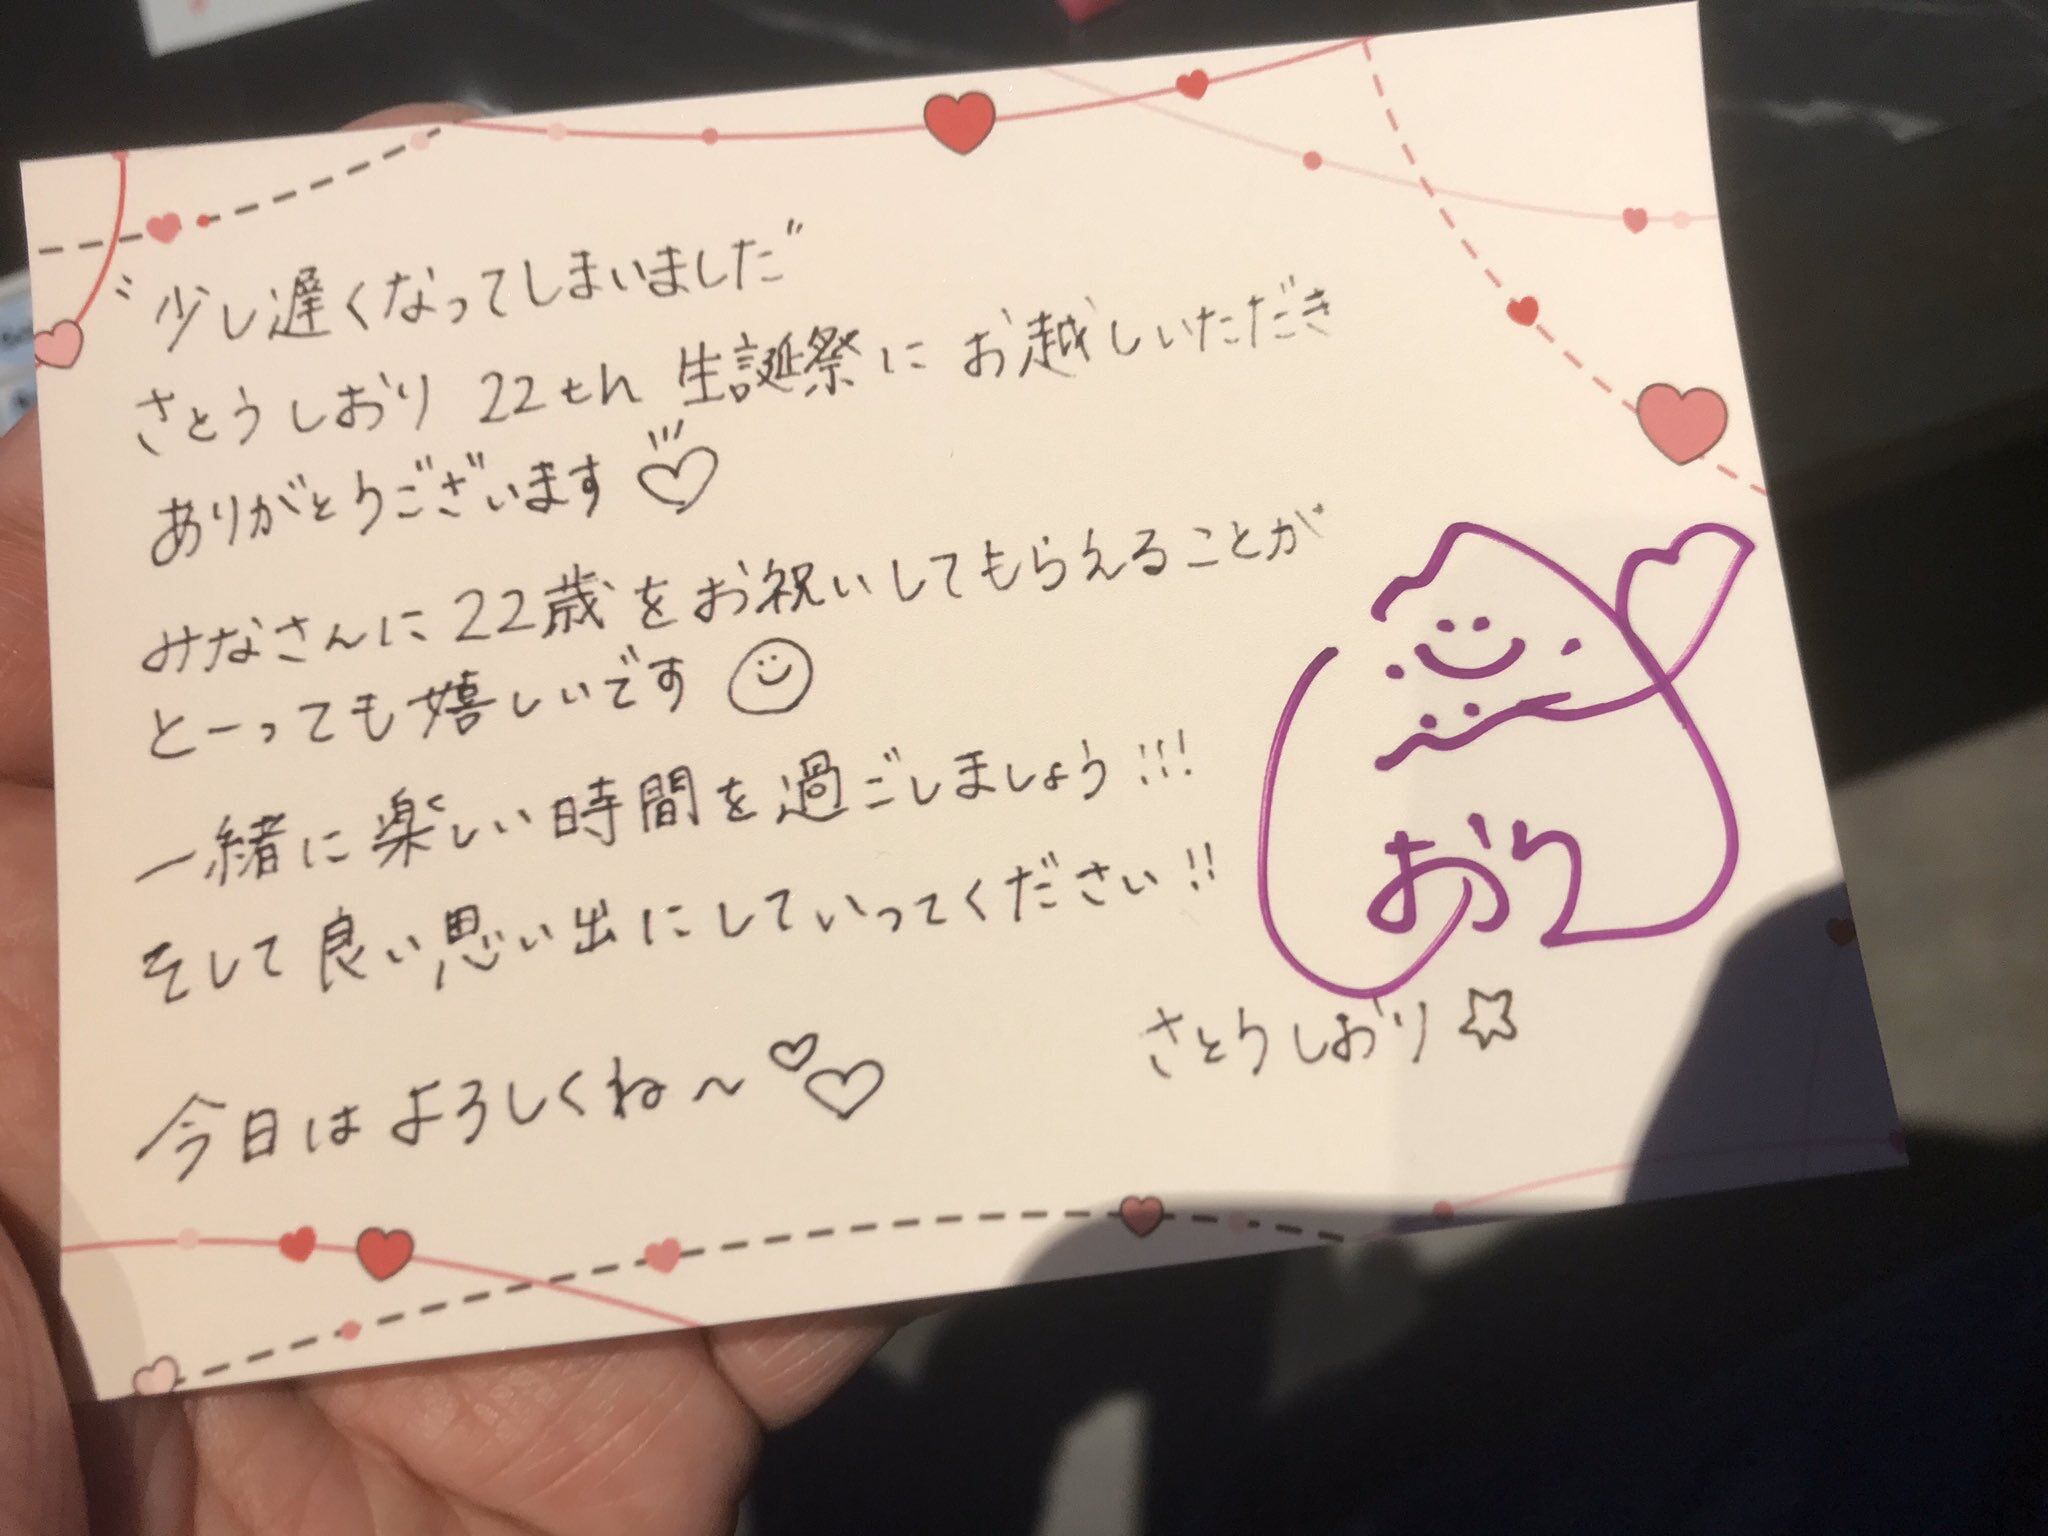 "少し遅くなってしまいました"
さとうしおり 22th 生誕祭に お越しいただき
ありがとうございます♡
みなさんに22歳をお祝いしてもらえることが
とーっても嬉しいです
一緒に楽しい時間を過ごしましょう!!!
そして良い思い出にしていってください!!
今日はよろしくね〜♡♡
しおり
さとうしおり☆